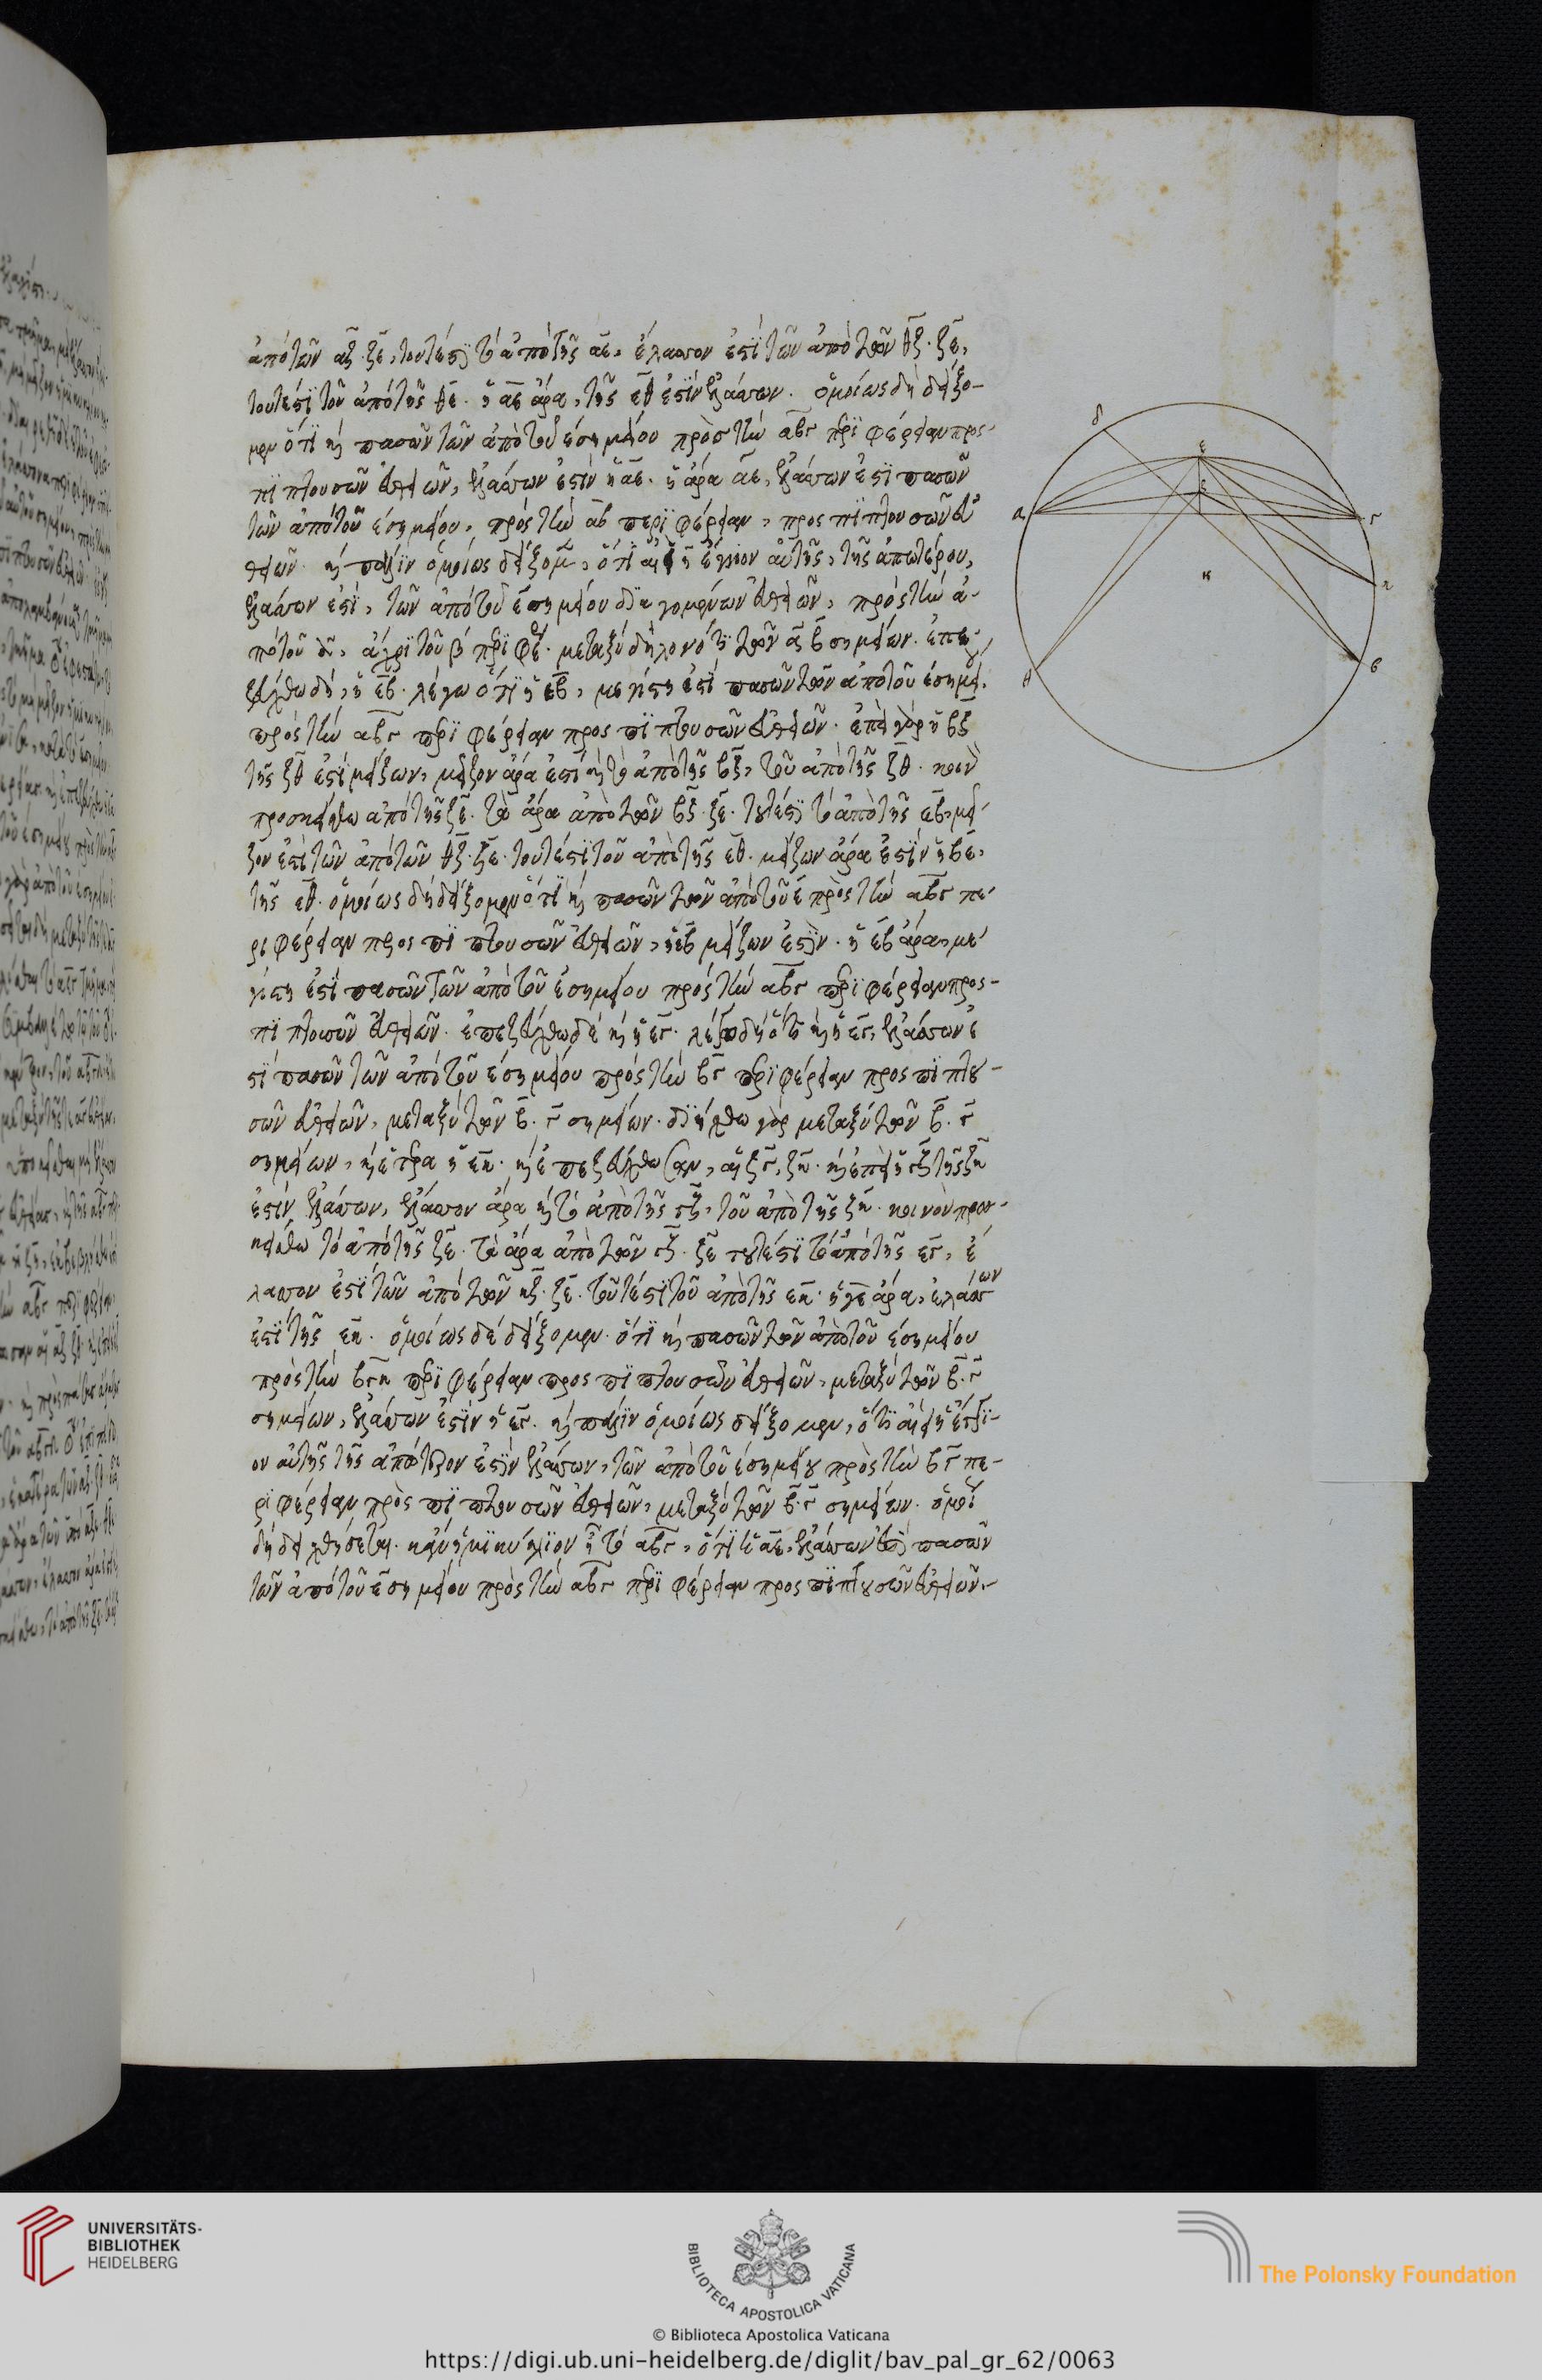 ἀπὸ τῶν αξ. ξε, τουτέστι τὸ ἀπὸ τῆς αε, ἔλασσον ἐστὶ τῶν ἀπὸ τῶν θξ. ξε,
τουτέστι τοῦ ἀπὸ τῆς θε. ἡ αε ἄρα, τῆς εθ ἐστὶν ἐλάσσων. ὁμοίως δὴ δείξο-
μεν ὅτι καὶ πασῶν τῶν ἀπὸ τοῦ ε σημείου πρὸς τὴν αβγ περιφέρειαν προσ-
πιπτουσῶν εὐθειῶν, ἐλάσσων ἐστὶν ἡ αε. ἡ ἄρα αε, ἐλάσσων ἐστὶ πασῶν
τῶν ἀπὸ τοῦ ε σημείου, πρὸς τὴν αβ περιφέρειαν, προσπιπτουσῶν εὐ
θειῶν. καὶ πάλιν ὁμοίως δείξομεν, ὅτι αἰεὶ ἡ ἔγγιον αὐτῆς, τῆς ἀπωτέρου,
ἐλάσσων ἐστὶ, τῶν ἀπὸ τοῦ ε σημείου διαγομένων εὐθειῶν, πρὸς τὴν ἀ-
πὸ τοῦ ἄχρι τοῦ β περιφε. μεταξὺ δηλονότι τῶν α β σημείων. ἐπε
ζεύχθω δὴ, ἡ εβ. λέγω ὅτι ἡ εβ, μεγίστη ἐστὶ πασῶν τῶν ἀπὸ τοῦ ε σημεί.
πρὸς τὴν αβγ περιφέρειαν προσπιπτουσῶν εὐθειῶν. ἐπεὶ γὰρ ἡ βξ
τῆς ξθ ἐστὶ μείζων, μεῖζον ἄρα ἐστὶ καὶ τὸ ἀπὸ τῆς βξ, τοῦ ἀπὸ τῆς ξθ. κοινὸ
προσκείσθω ἀπὸ τῆς ξε. τὰ ἄρα ἀπὸ τῶν βξ. ξε. τουτέστι τὸ ἀπὸ τῆς εβ, μεῖ-
ζον ἐστὶ τῶν ἀπὸ τῶν θξ. ξε. τουτέστι τοῦ ἀπὸ τῆς εθ. μείζων ἄρα ἐστὶν ἡ βε,
τῆς εθ. ὁμοίως δὴ δείξομεν ὅτι καὶ πασῶν τῶν ἀπὸ τοῦ ε πρὸς τὴν αβγ πε-
ριφέρειαν προσπιπτουσῶν εὐθειῶν, ἡ εβ μείζων ἐστὶν. ἡ εβ ἄρα, με
γίστη ἐστὶ πασῶν τῶν ἀπὸ τοῦ ε σημείου πρὸς τὴν αβγ περιφέρειαν προσ-
πιπτουσῶν εὐθειῶν. ἐπεζεύχθω δὲ καὶ ἡ εγ. λέγω δὴ ὅτι καὶ ἡ εγ, ἐλάσσων ἐ
στὶ πασῶν τῶν ἀπὸ τοῦ ε σημείου πρὸς τὴν βγ περιφέρειαν προσπιπτου-
σῶν εὐθειῶν, μεταξὺ τῶν β. γ σημείων. διήχθω γὰρ μεταξὺ τῶν β. γ
σημείων, καὶ ἑτέρα ἡ εη. καὶ ἐπεζεύχθωσαν, αἱ ξγ, ξη. καὶ ἐπεὶ ἡ γξ τῆς ξη
ἐστὶν ἐλάσσων, ἔλασσον ἄρα καὶ τὸ ἀπὸ τῆς γξ, τοῦ ἀπὸ τῆς ξη. κοινὸν προσ-
κείσθω τὸ ἀπὸ τῆς ξε. τὰ ἄρα ἀπὸ τῶν γξ. ξε τουτέστι τὸ ἀπὸ τῆς εγ, ἔ
λασσον ἐστὶ τῶν ἀπὸ τῶν ηξ. ξε. τουτέστι τοῦ ἀπὸ τῆς εη. ἡ γε ἄρα, ἐλάσσων
ἐστὶ τῆς εη. ὁμοίως δὲ δείξομεν. ὅτι καὶ πασῶν τῶν ἀπὸ τοῦ ε σημείου
πρὸς τὴν βγη περιφέρειαν προσπιπτουσῶν εὐθειῶν, μεταξὺ τῶν β. γ
σημείων, ἐλάσσων ἐστὶν ἡ εγ. καὶ πάλιν ὁμοίως δείξομεν, ὅτι αἰεὶ ἡ ἔγγι-
ον αὐτῆς τῆς ἀπώτερον ἐστὶν ἐλάσσων, τῶν ἀπὸ τοῦ ε σημείου πρὸς τὴν βγ πε-
ριφέρειαν προσπιπτουσῶν εὐθειῶν, μεταξὺ τῶν β. γ σημείων. ὁμοί
δὴ δειχθήσεται. κἂν ἡμικύκλιον ἦ τὸ αβγ, ὅτι ἡ αε, ἐλάσσων ἐστὶ πασῶν
τῶν ἀπὸ τοῦ ε σημείου πρὸς τὴν αβγ περιφέρειαν προσπιπτουσῶν εὐθειῶν.-
δ
ε
ξ
α
γ
κ
η
θ
β
UNIVERSITÄTS-
BIBLIOTHEK
HEIDELBERG
BIBLIOTECA APOSTOLICA VATICANA
The Polonsky Foundation
© Biblioteca Apostolica Vaticana
https://digi.ub.uni-heidelberg.de/diglit/bav_pal_gr_62/0063